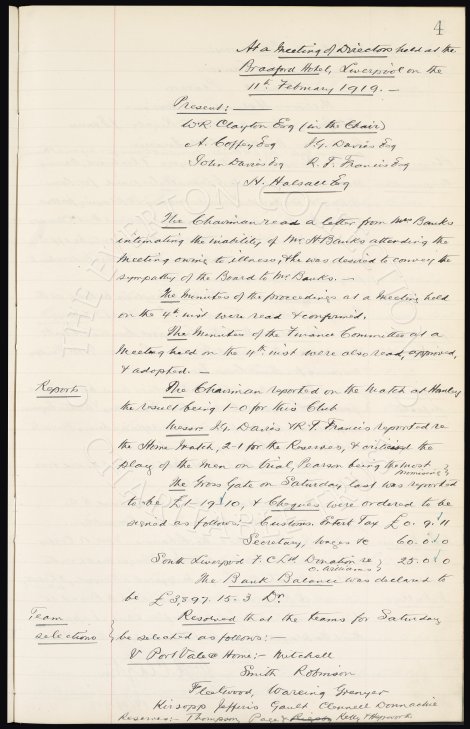 4
At a Meeting of Directors held at the
Bradford Hotel, Liverpool on the
11th February 1919. —
Present: —
W.R. Clayton Esq (in the Chair)
A. Coffey Esq J.G. Davies Esq
John Davies Esq R. F. Francis Esq
H. Halsall Esq
The Chairman read a letter from Mrs Banks
intimating the inability of Mr H Banks attending the
Meeting owing to illness, & he was desired to convey the
sympathy of the Board to Mr Banks. —
The Minutes of the proceedings at a Meeting held
on the 4th inst were read & confirmed.
The Minutes of the Finance Committee at a
Meeting held on the 4th inst were also read, approved,
& adopted. —
Reports The Chairman reported on the Match at Hanley
the result being 1-0 for this Club
Messrs J.G. Davies & R. F. Francis reported re
the Home Match, 2-1 for the Reserves, & criticised the
play of the men on trial, Pearson being the most
promising
The Gross Gate on Saturday last was reported
to be £1-19-10, & Cheques were ordered to be
signed as follows. Customs. Entert Tax £0. 9. 11
Secretary, Wages &c 60. 0. 0
South Liverpool F.C Ltd Donation re 25. 0. 0
O. Williams
The Bank Balance was declared to
be £3,897. 15. 3 Dr
Team Resolved that the teams for Saturday
selections be selected as follows: —
V Port Vale @ Home: - Mitchell
Smith Robinson
Fleetwood, Wareing Grenyer
Kirsopp Jefferis Gault Clennell Donnachie
Reserves: - Thompson, Page & Kelly & Hepworth
THE EVERTON CO